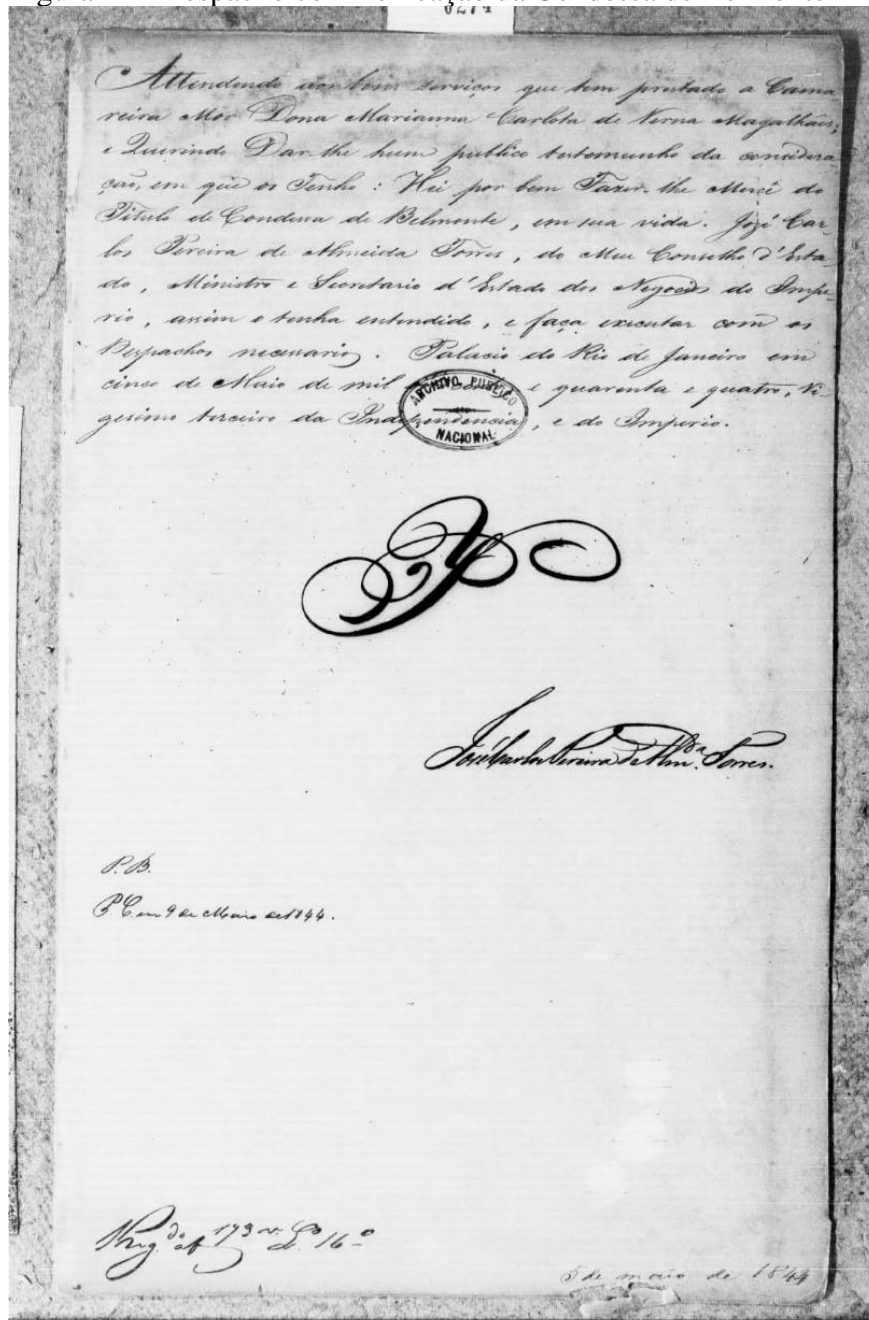 Attendendo aos bons serviços que tem prestado a Cama
reira Mor Dona Marianna Carlota de Verna Magalhães;
e Querendo Dar-lhe hum publico testemunho da considera
ção, em que os Tenho : Hei por bem Fazer-lhe Mercê do
Titulo de Condessa de Belmonte, em sua vida. José Car-
los Pereira de Almeida Torres, do Meu Conselho d'Esta-
do, Ministro e Secretario d'Estado dos Negocios do Impe-
rio, assim o tenha entendido, e faça executar com os
Despachos necessarios. Palacio do Rio de Janeiro em
cinco de Maio de mil e quarenta e quatro, Vi-
gesimo terceiro da Independencia, e do Imperio.
ARCHIVO PUBLICO
NACIONAL
José Carlos Pereira d'Alm.da Torres.
P. B.
P. C. em 9 de Maio de 1844.
Reg.do a f 173 v. L.o 16.o
5 de maio de 1844